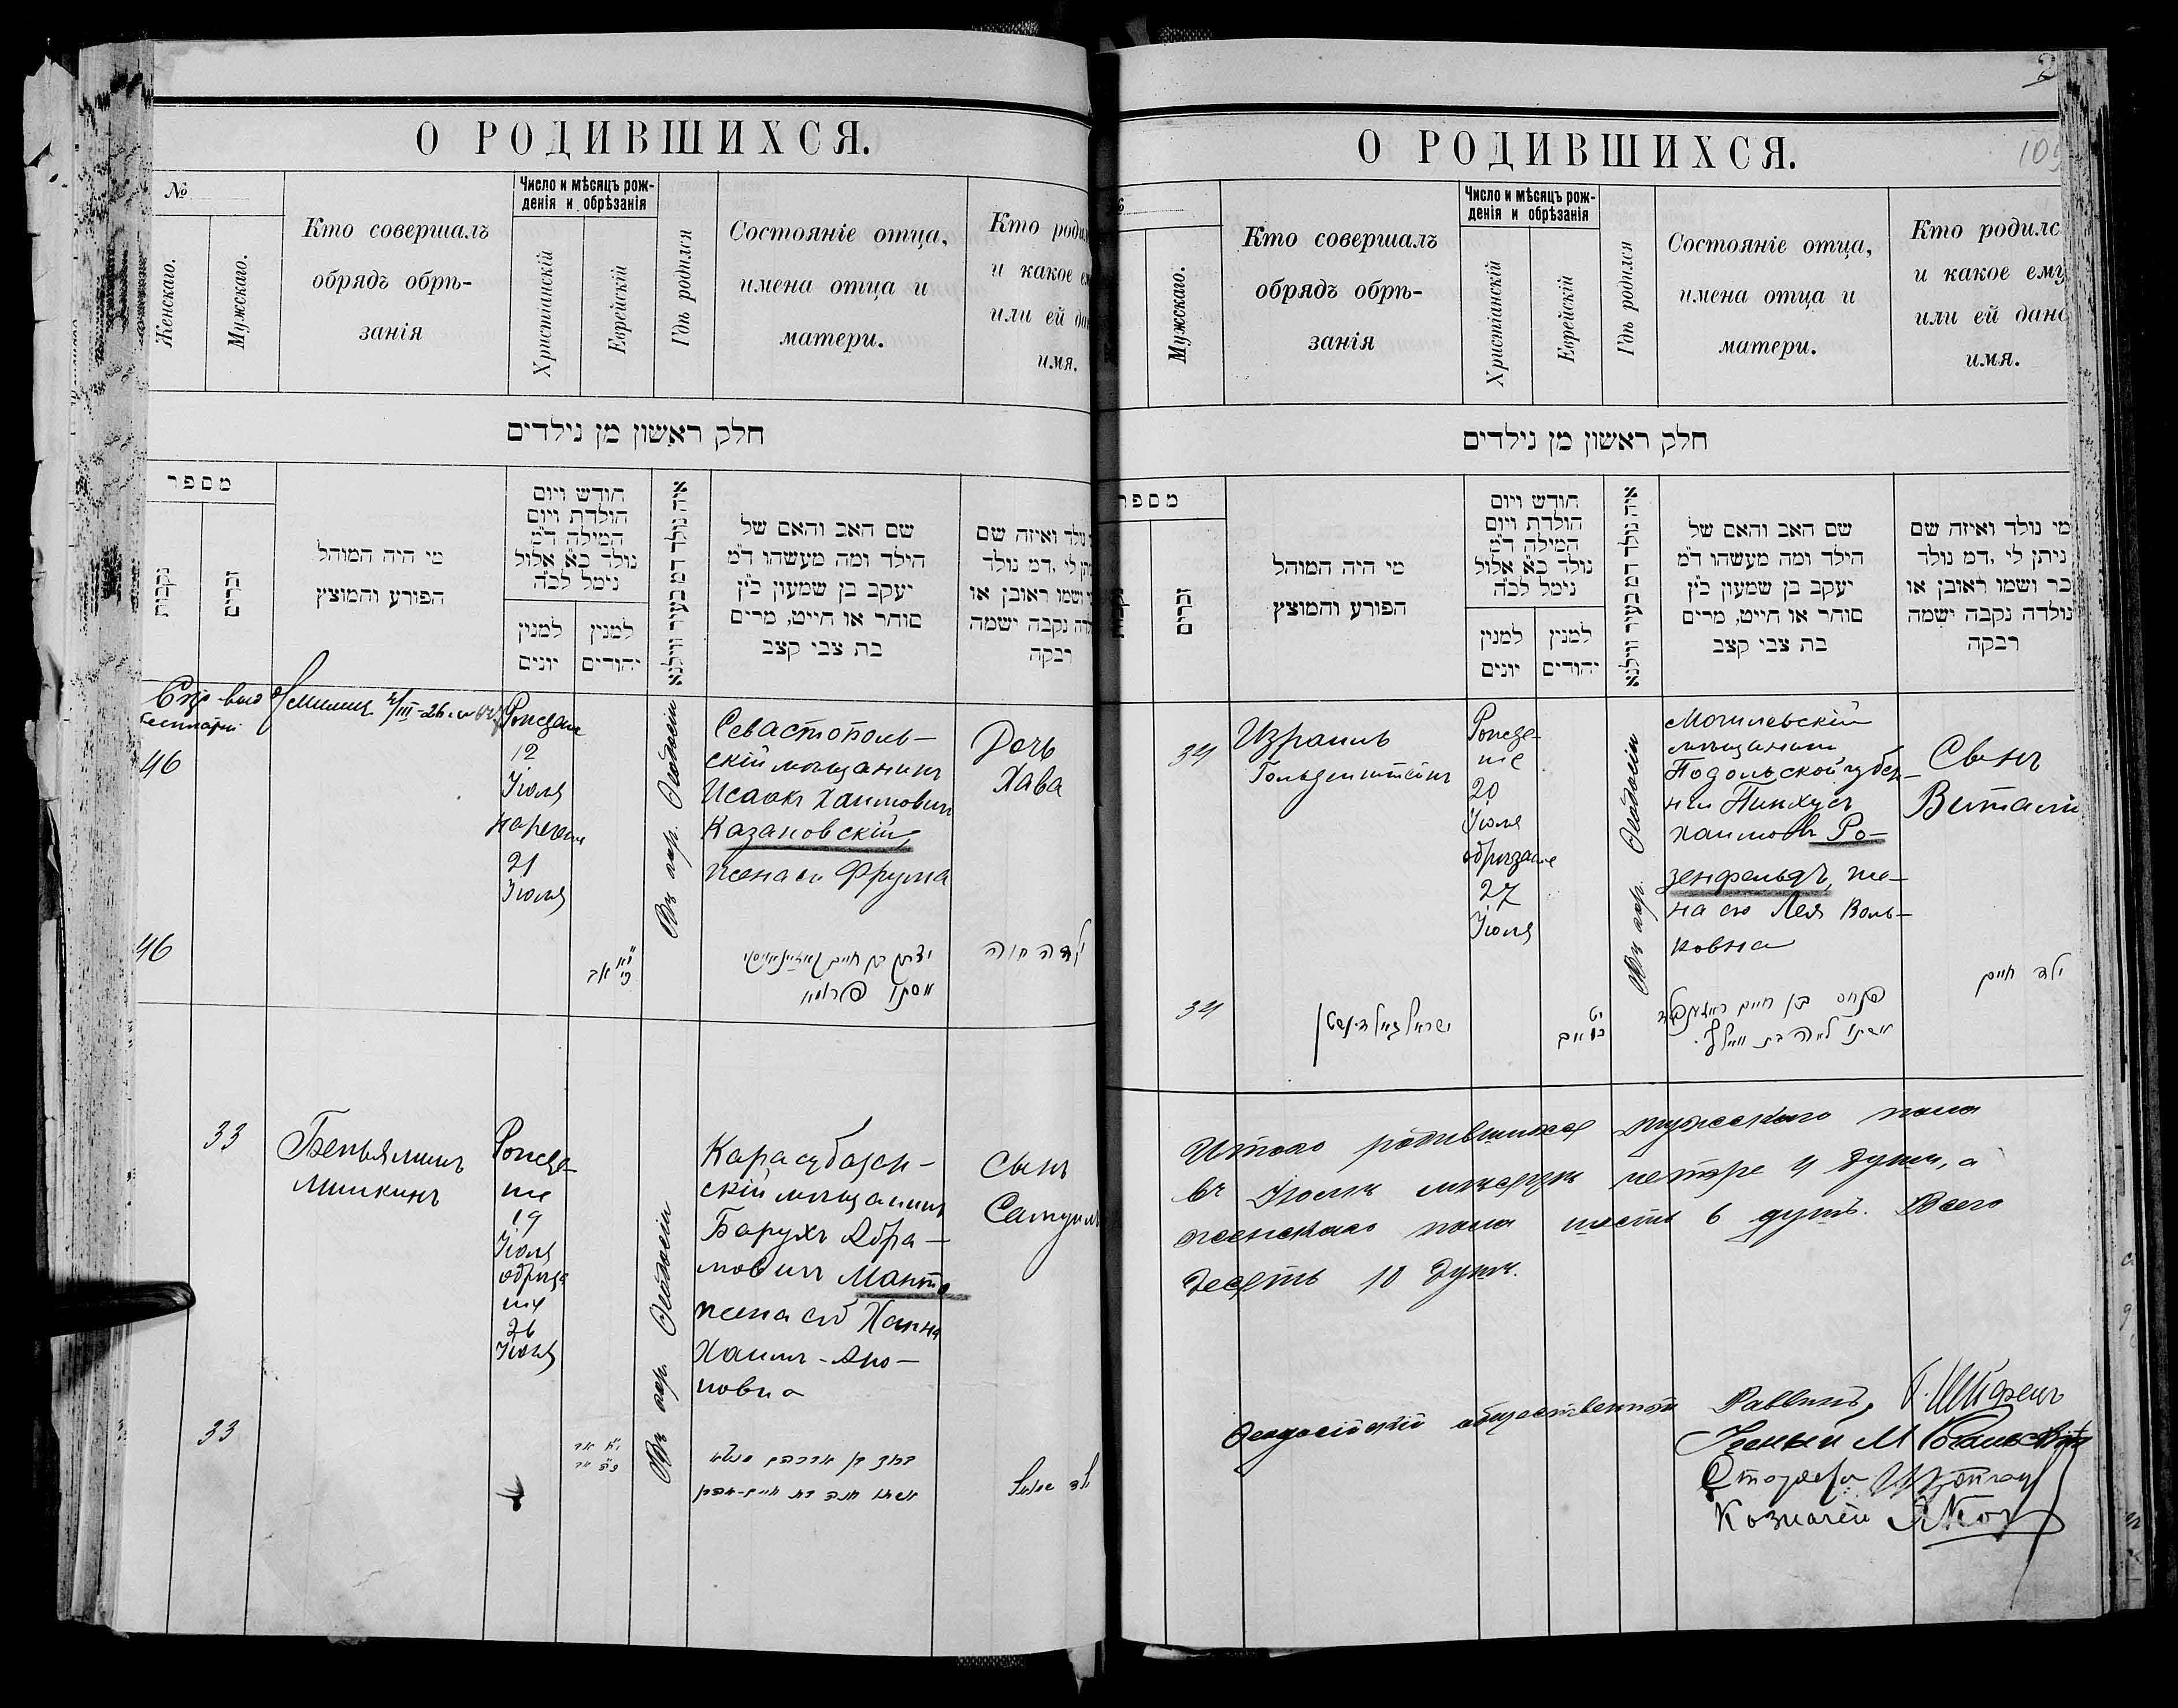 О РОДИВШИХСЯ.
№
Женскаго.
Мужскаго.
Кто совершалъ
обрядъ обрѣ-
занія
Число и мѣсяцъ рож-
денія и обрѣзанія
Христіанскій
Еврейскій
Гдѣ родился
Состояніе отца,
имена отца и
матери.
Кто роди
и какое
или ей
имя.
חלק ראשון מן נילדים
מספר
נקבות
זכרים
מי היה המוהל
הפורע והמוצץ
חודש ויום
הולדת ויום
המילה ד"מ
נולד כ"א אלול
נימל לכ"ה
למנין
יונים
למנין
יהודים
איה נולד דמ בעיר ווילנא
שם האב והאם של
הילד ומה מעשהו ד"מ
יעקב בן שמעון כ"ץ
סוחר או חייט, מרים
בת צבי קצב
נולד ואיזה שם
לי, דמ נולד
ושמו ראובן או
נקבה ישמה
רבקה
46
12
Іюля
21
Іюля
Въ гор. Ѳеодосіи
Севастополь-
скій мѣщанинъ
Исаакъ Хаимовичъ
Казановскій,
жена его Фрума
Дочь
Хава
46
ילדה חוה
33
Беньяминъ
Мишкинъ
Рожде-
ніе
19
Іюля
обрѣза
ніе
26
Іюля
Въ гор. Ѳеодосіи
Карасубазар-
скій мѣщанинъ
Барухъ Абра-
мовичъ Манто
жена его Ханна
Хаимъ-Аро-
новна
Сынъ
Самуилъ
33
О РОДИВШИХСЯ.
Мужскаго.
Кто совершалъ
обрядъ обрѣ-
занія
Число и мѣсяцъ рож-
денія и обрѣзанія
Христіанскій
Еврейскій
Гдѣ родился
Состояніе отца,
имена отца и
матери.
Кто родилс
и какое ему
или ей дано
имя.
חלק ראשון מן נילדים
מספר
זכרים
מי היה המוהל
הפורע והמוצץ
חודש ויום
הולדת ויום
המילה ד"מ
נולד כ"א אלול
נימל לכ"ה
למנין
יונים
למנין
יהודים
איה נולד דמ בעיר ווילנא
שם האב והאם של
הילד ומה מעשהו ד"מ
יעקב בן שמעון כ"ץ
סוחר או חייט, מרים
בת צבי קצב
מי נולד ואיזה שם
ניתן לי, דמ נולד
זכר ושמו ראובן או
נולדה נקבה ישמה
רבקה
34
Израиль
Гольденштейнъ
Рожде-
ніе
20
Іюля
обрѣзаніе
27
Іюля
Въ гор. Ѳеодосіи
Могилевскій
мѣщанинъ
Подольской губер-
ніи Пинхусъ
Хаимовъ Ро-
зенфельдъ, же-
на его Лея Воль-
ковна
Сынъ
Виталій
34
ילד חיים
Итого родившихся мужскаго пола
въ Іюлѣ мѣсяцѣ четыре 4 души, а
женскаго пола шесть 6 душъ. Всего
десять 10 душъ.
Ѳеодосійскій общественный Раввинъ,
Ученый М
Староста
Козначей